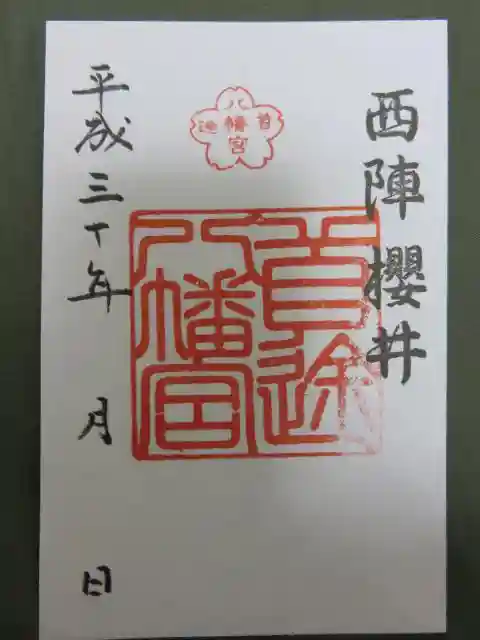 西陣 櫻井
首途
八幡宮
首途
八幡宮
平成三十年 月 日